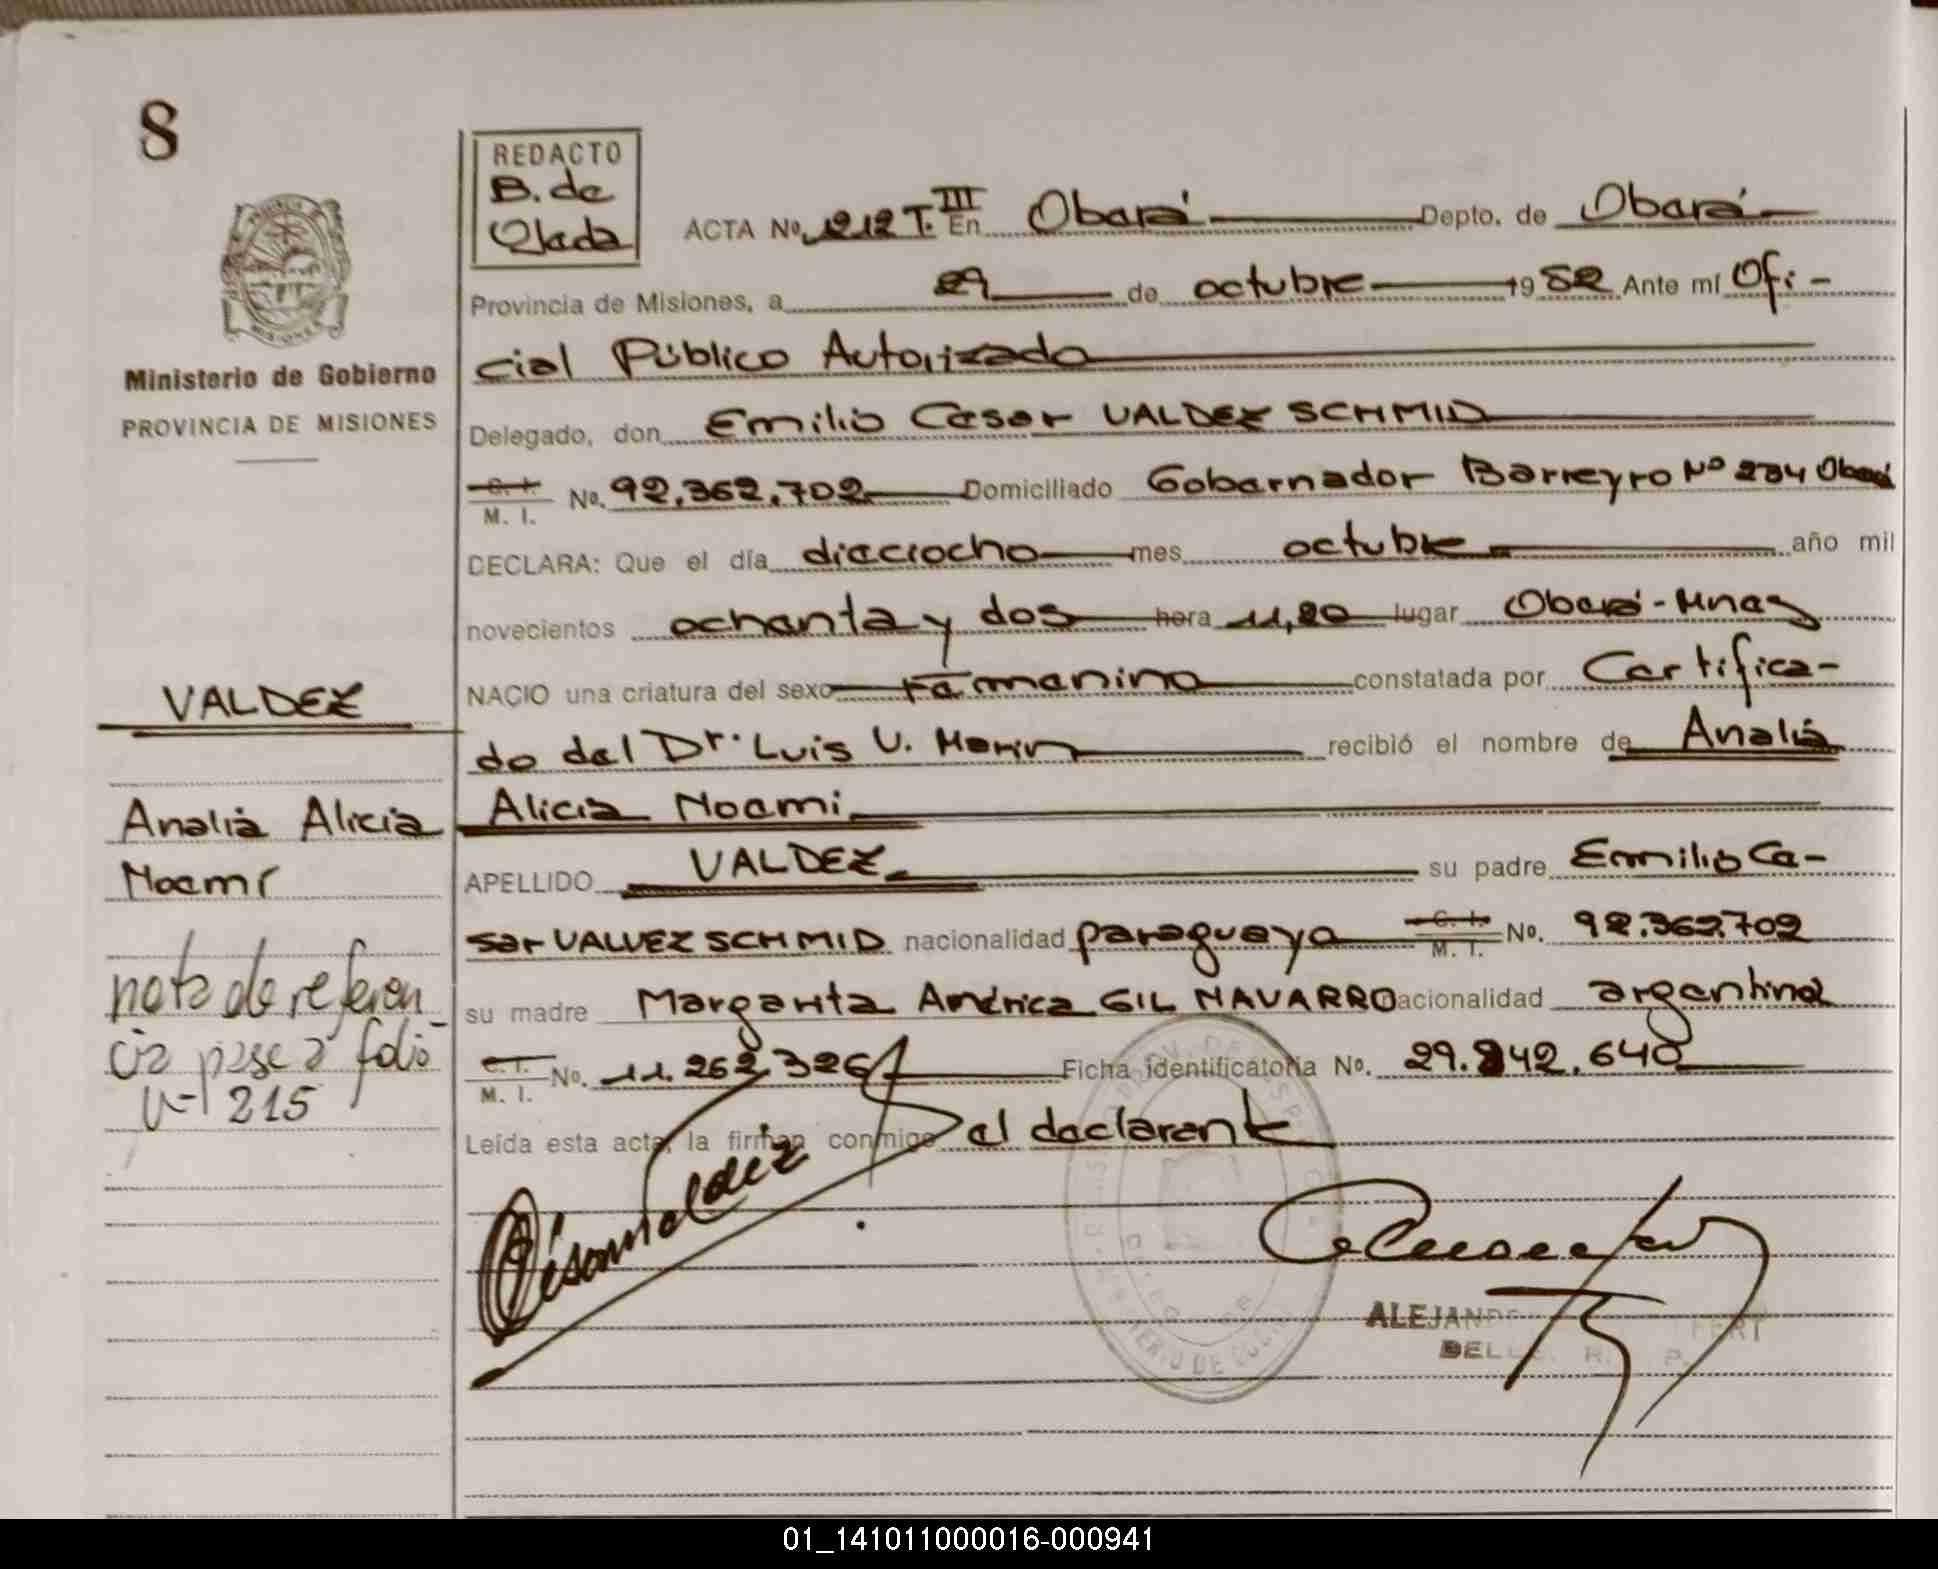 8
REDACTO
B. de
Olada
ACTA No. 1212 T. III En Oberá Depto. de Oberá
Provincia de Misiones, a 29 de octubre 1982 Ante mí Ofi-
cial Público Autorizado
Delegado, don Emilio Cesar VALDEZ SCHMID
C. I. M. I. No. 92.362.702 Domiciliado Gobernador Barreyro Nº 234 Oberá
DECLARA: Que el día dieciocho mes octubre año mil
novecientos ochenta y dos hora 11,20 lugar Oberá-Mnes
NACIO una criatura del sexo femenino constatada por Certifica-
do del Dr. Luis V. Marin recibió el nombre de Analia
Alicia Noemi
APELLIDO VALDEZ su padre Emilio Ce-
sar VALVEZ SCHMID nacionalidad paraguaya C. I. M. I. No. 92.362.702
su madre Margarita América GIL NAVARRO nacionalidad argentina
C. I. M. I. No. 11.262.326 Ficha identificatoria No. 29.842.640
Leída esta acta, la firman conmigo el declarante
ALEJAND
Ministerio de Gobierno
PROVINCIA DE MISIONES
VALDEZ
Analia Alicia
Noemí
nota de referen
cia pase a folio
215
01_141011000016-000941